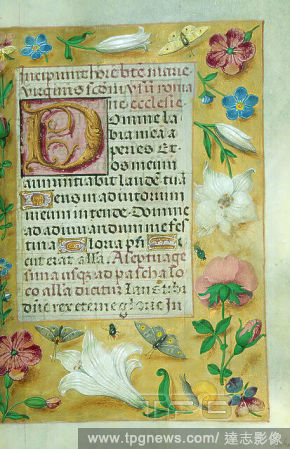 Incipiunt hore bte marie
virginis scdm usū roma
ne ecclesie.
Domine la
bia mea a
peries. Et
os meum
annuntiabit laudē tuā
Deus in adiutorium
meum intende. Domine
ad adiuuandum me fes
tina Gloria pri
erat alla. A septuage
sima usqz ad pascha lo
co alla dicitur Laus tibi
dn̄e rex eterne glorie In
TPG
www.tpgnews.com/ 達志影像